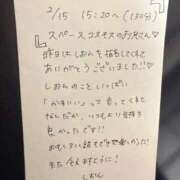 2/15 15:20〜(130分)
スペースコスモスのお兄さん♡
昨日はしおんを指名してくれて
ありがとうございました!!♡
しおんのこといっぱい
「かわいい」って言ってくれて
なんだか、いつもより気持ちも
良かったです♡
また会えますように!
しおん